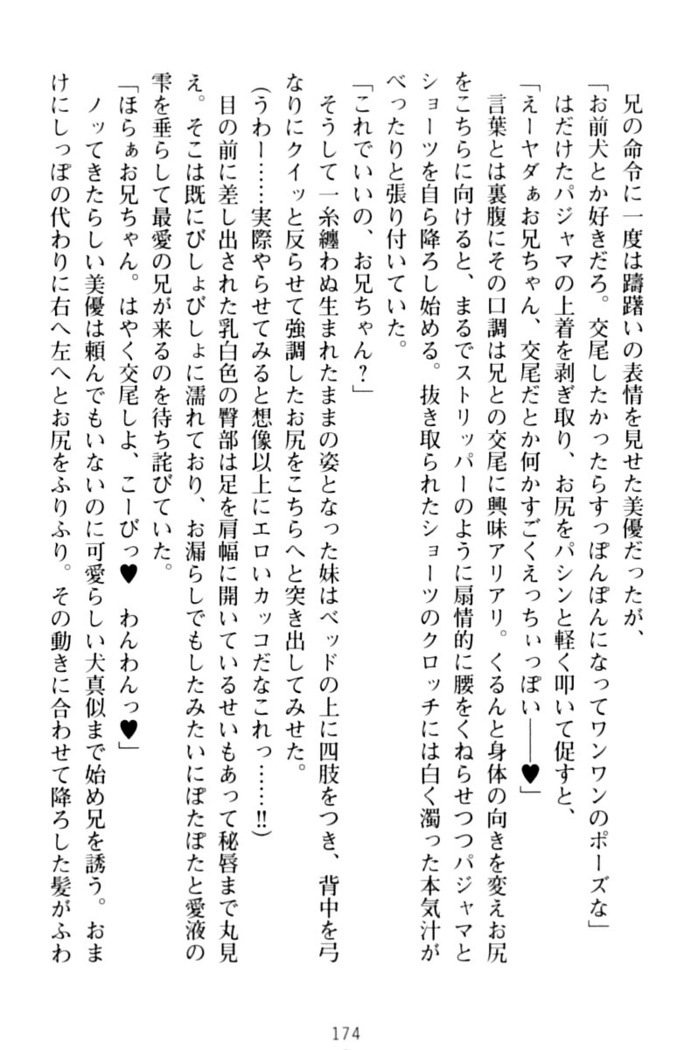 兄の命令に一度は躊躇いの表情を見せた美優だったが、
「お前犬とか好きだろ。交尾したかったらすっぽんぽんになってワンワンのポーズな」
はだけたパジャマの上着を剥ぎ取り、お尻をパシンと軽く叩いて促すと、
「えーヤダぁお兄ちゃん、交尾だとか何かすごくえっちぃっぽい――♥」
言葉とは裏腹にその口調は兄との交尾に興味アリアリ。くるんと身体の向きを変えお尻
をこちらに向けると、まるでストリッパーのように扇情的に腰をくねらせつつパジャマと
ショーツを自ら降ろし始める。抜き取られたショーツのクロッチには白く濁った本気汁が
べったりと張り付いていた。
「これでいいの、お兄ちゃん？」
そうして一糸纏わぬ生まれたままの姿となった妹はベッドの上に四肢をつき、背中を弓
なりにクイッと反らせて強調したお尻をこちらへと突き出してみせた。
(うわー……実際やらせてみると想像以上にエロいカッコだなこれっ……!!)
目の前に差し出された乳白色の臀部は足を肩幅に開いているせいもあって秘唇まで丸見
え。そこは既にびしょびしょに濡れており、お漏らしでもしたみたいにぽたぽたと愛液の
雫を垂らして最愛の兄が来るのを待ち詫びていた。
「ほらぁお兄ちゃん。はやく交尾しよ、こーびっ♥　わんわんっ♥」
ノッてきたらしい美優は頼んでもいないのに可愛らしい犬真似まで始め兄を誘う。おま
けにしっぽの代わりに右へ左へとお尻をふりふり。その動きに合わせて降ろした髪がふわ
174